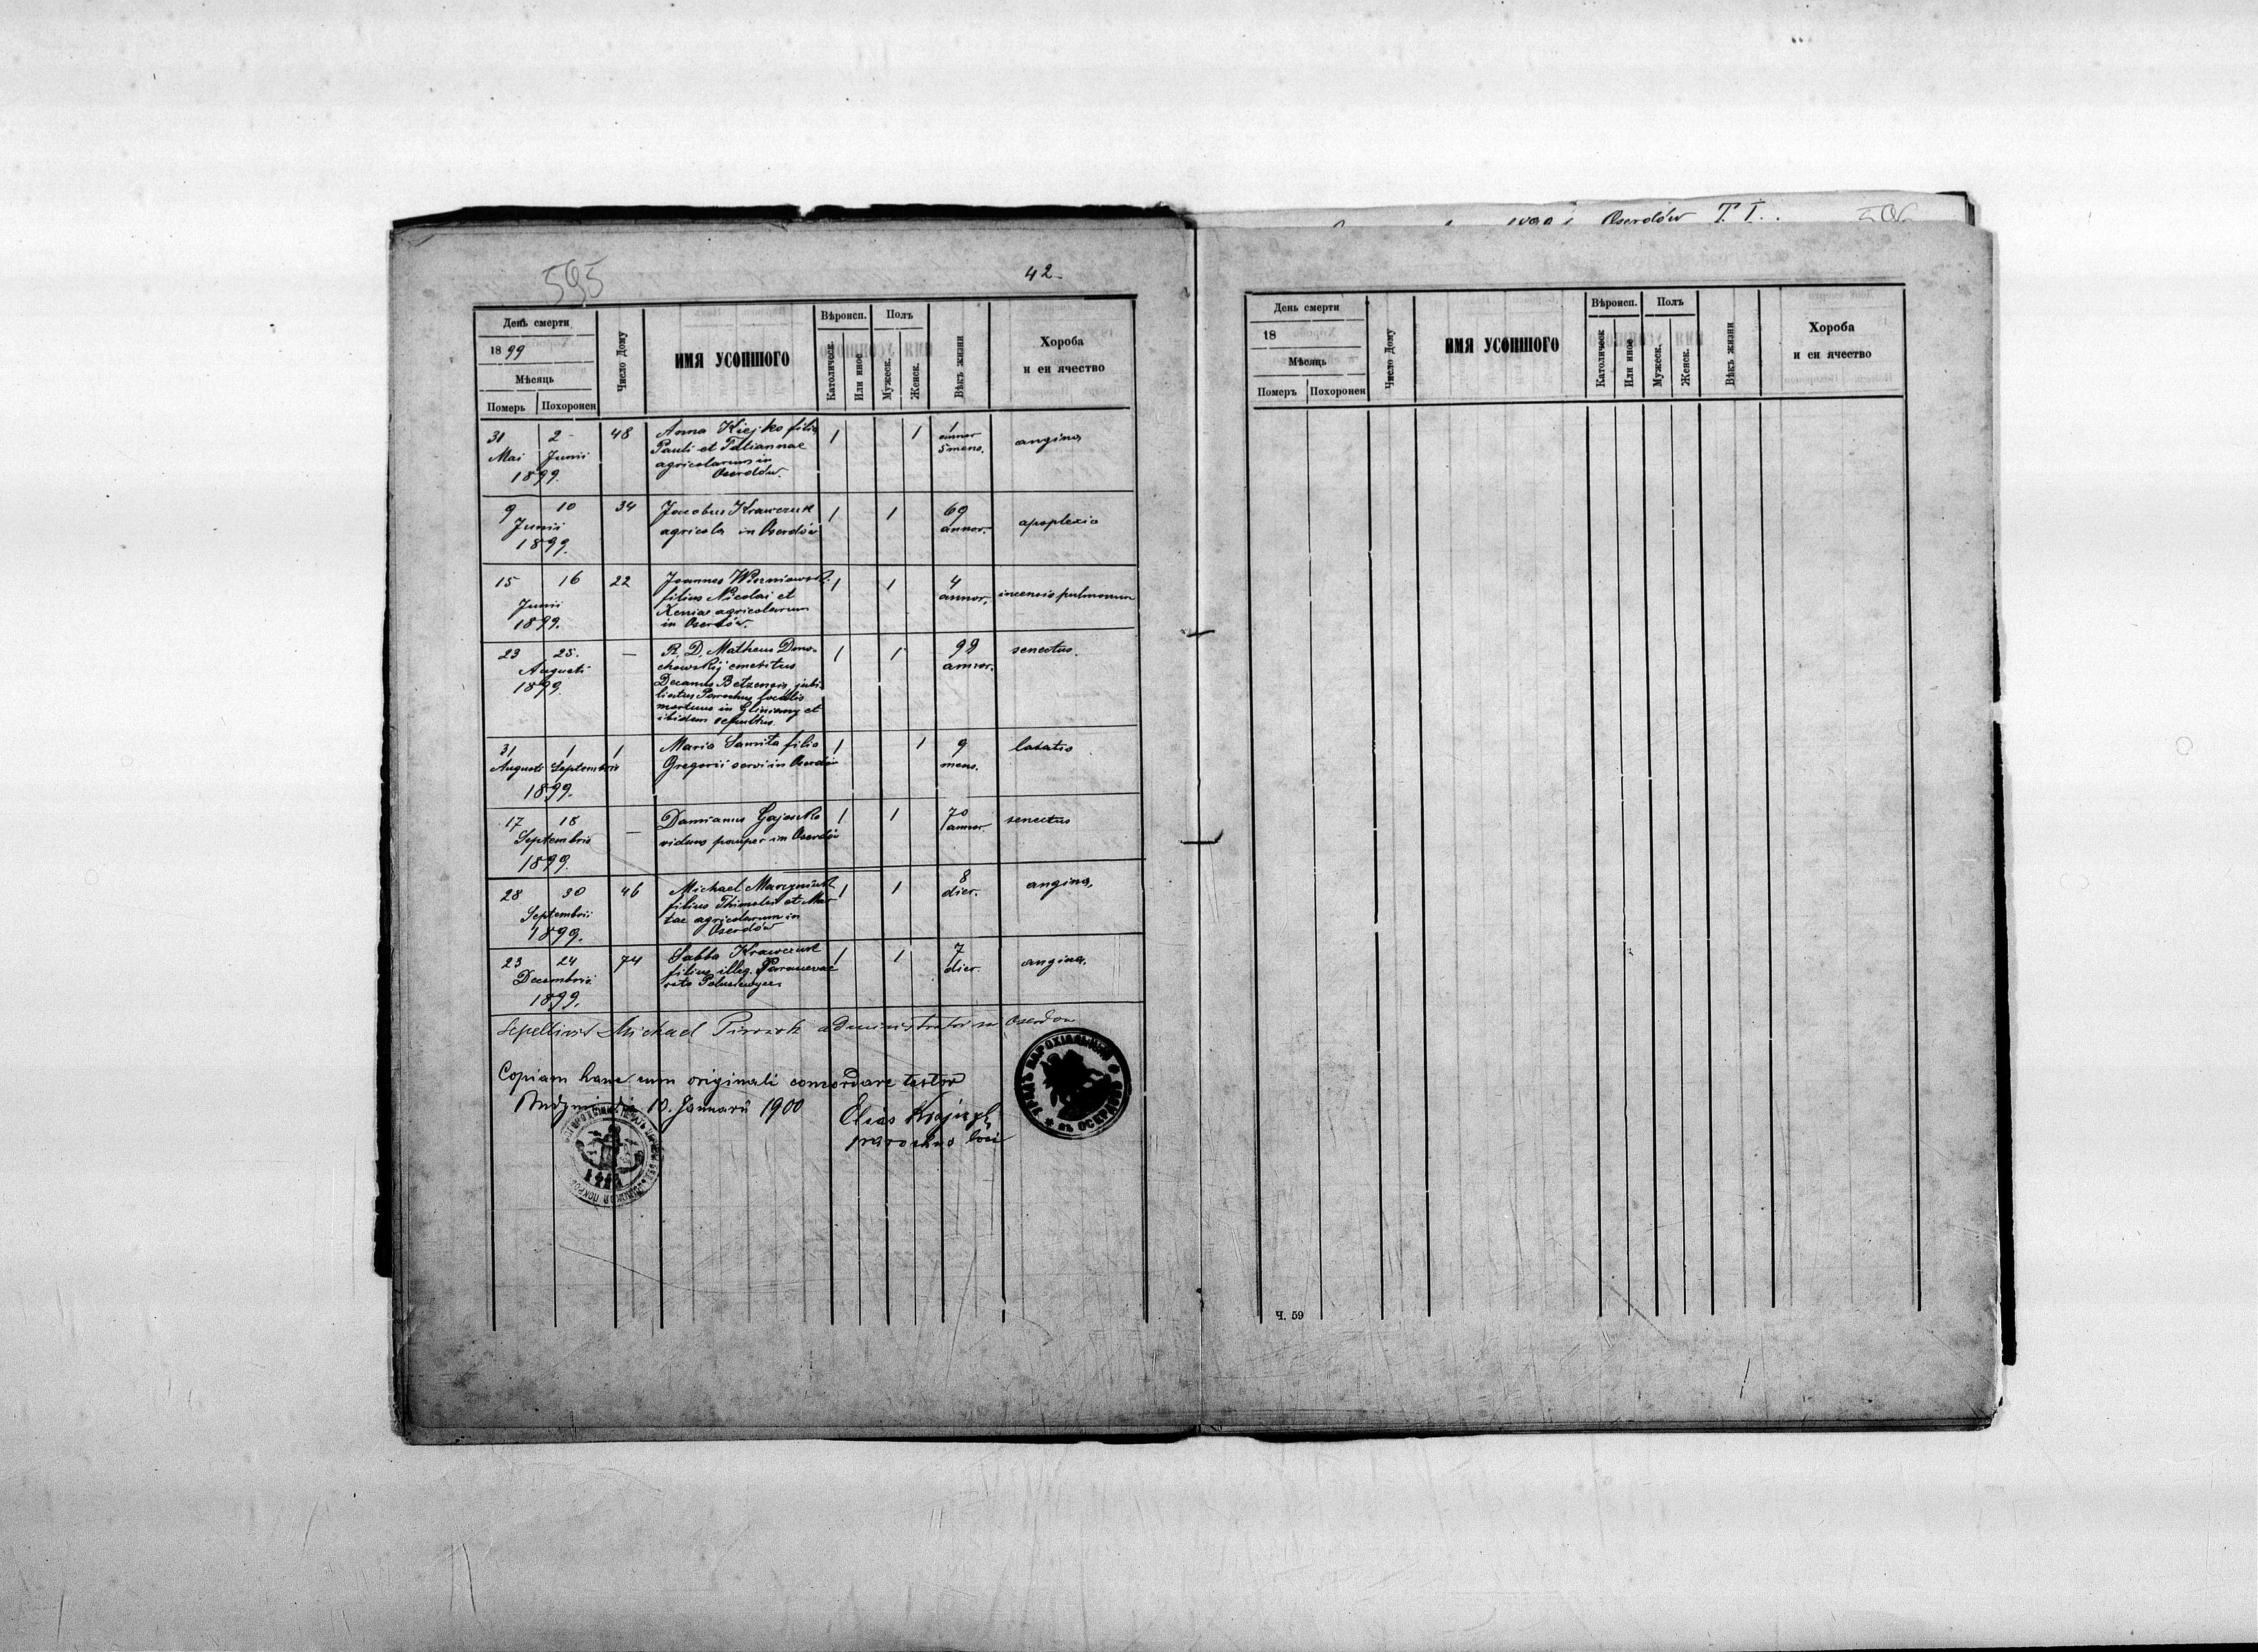 595
42
День смерти
1899
Мѣсяць
Померъ Похоронен
Число Дому
ИМЯ УСОПШОГО
Вѣроисп.
Католическ.
Или иное
Полъ
Мужеск.
Женск.
Вѣкъ жизни
Хороба
и еи ячество
31 2 48 Anna Kiejko filia 1 1 1 angina
Mai Junii Pauli et Tatiannae annor
1899. agricolarum in 5 mens.
Oserdów.
9 10 34 Jacobus Krawczuk 1 1 69 apoplexia
Junii agricola in Oserdów annor.
1899.
15 16 22 Joannes 1 1 4 incensio pulmonum
Junii filius Nicolai et annor.
1899. Xeniae agricolarum
in Oserdów.
23 25. — R. D. Matheus Dono- 1 1 99 senectus.
Augusti chowskij emeritus annor.
1899. Decanus Betzensis jubi-
latus Parochus localis
mortuus in Gliniany et
ibidem sepultus.
31 1 1 Maria Samita filia 1 1 9
Augusti Septembris Gregorii servi in Oserdów mens.
1899.
17 18 — Damianus 1 1 70 senectus
Septembris viduus pauper in Oserdów annor.
1899.
28 30 46 Michael 1 1 8 angina.
Septembris filius et Mar- dier.
1899. tae agricolarum in
Oserdów
23 24 74 Sabba Krawczuk 1 1 7 angina.
Decembris filius illeg. dier.
1899.
Sepelivit Michael administrator in Oserdow
Copiam hanc cum originali concordare testor
10. Januarii 1900
Elias
parochus loci
Oserdów T. I.
День смерти
18
Мѣсяць
Померъ Похоронен
Число Дому
ИМЯ УСОПШОГО
Вѣроисп.
Католическ
Или иное
Полъ
Мужеск.
Женск.
Вѣкъ жизни
Хороба
и еи ячество
Ч. 59